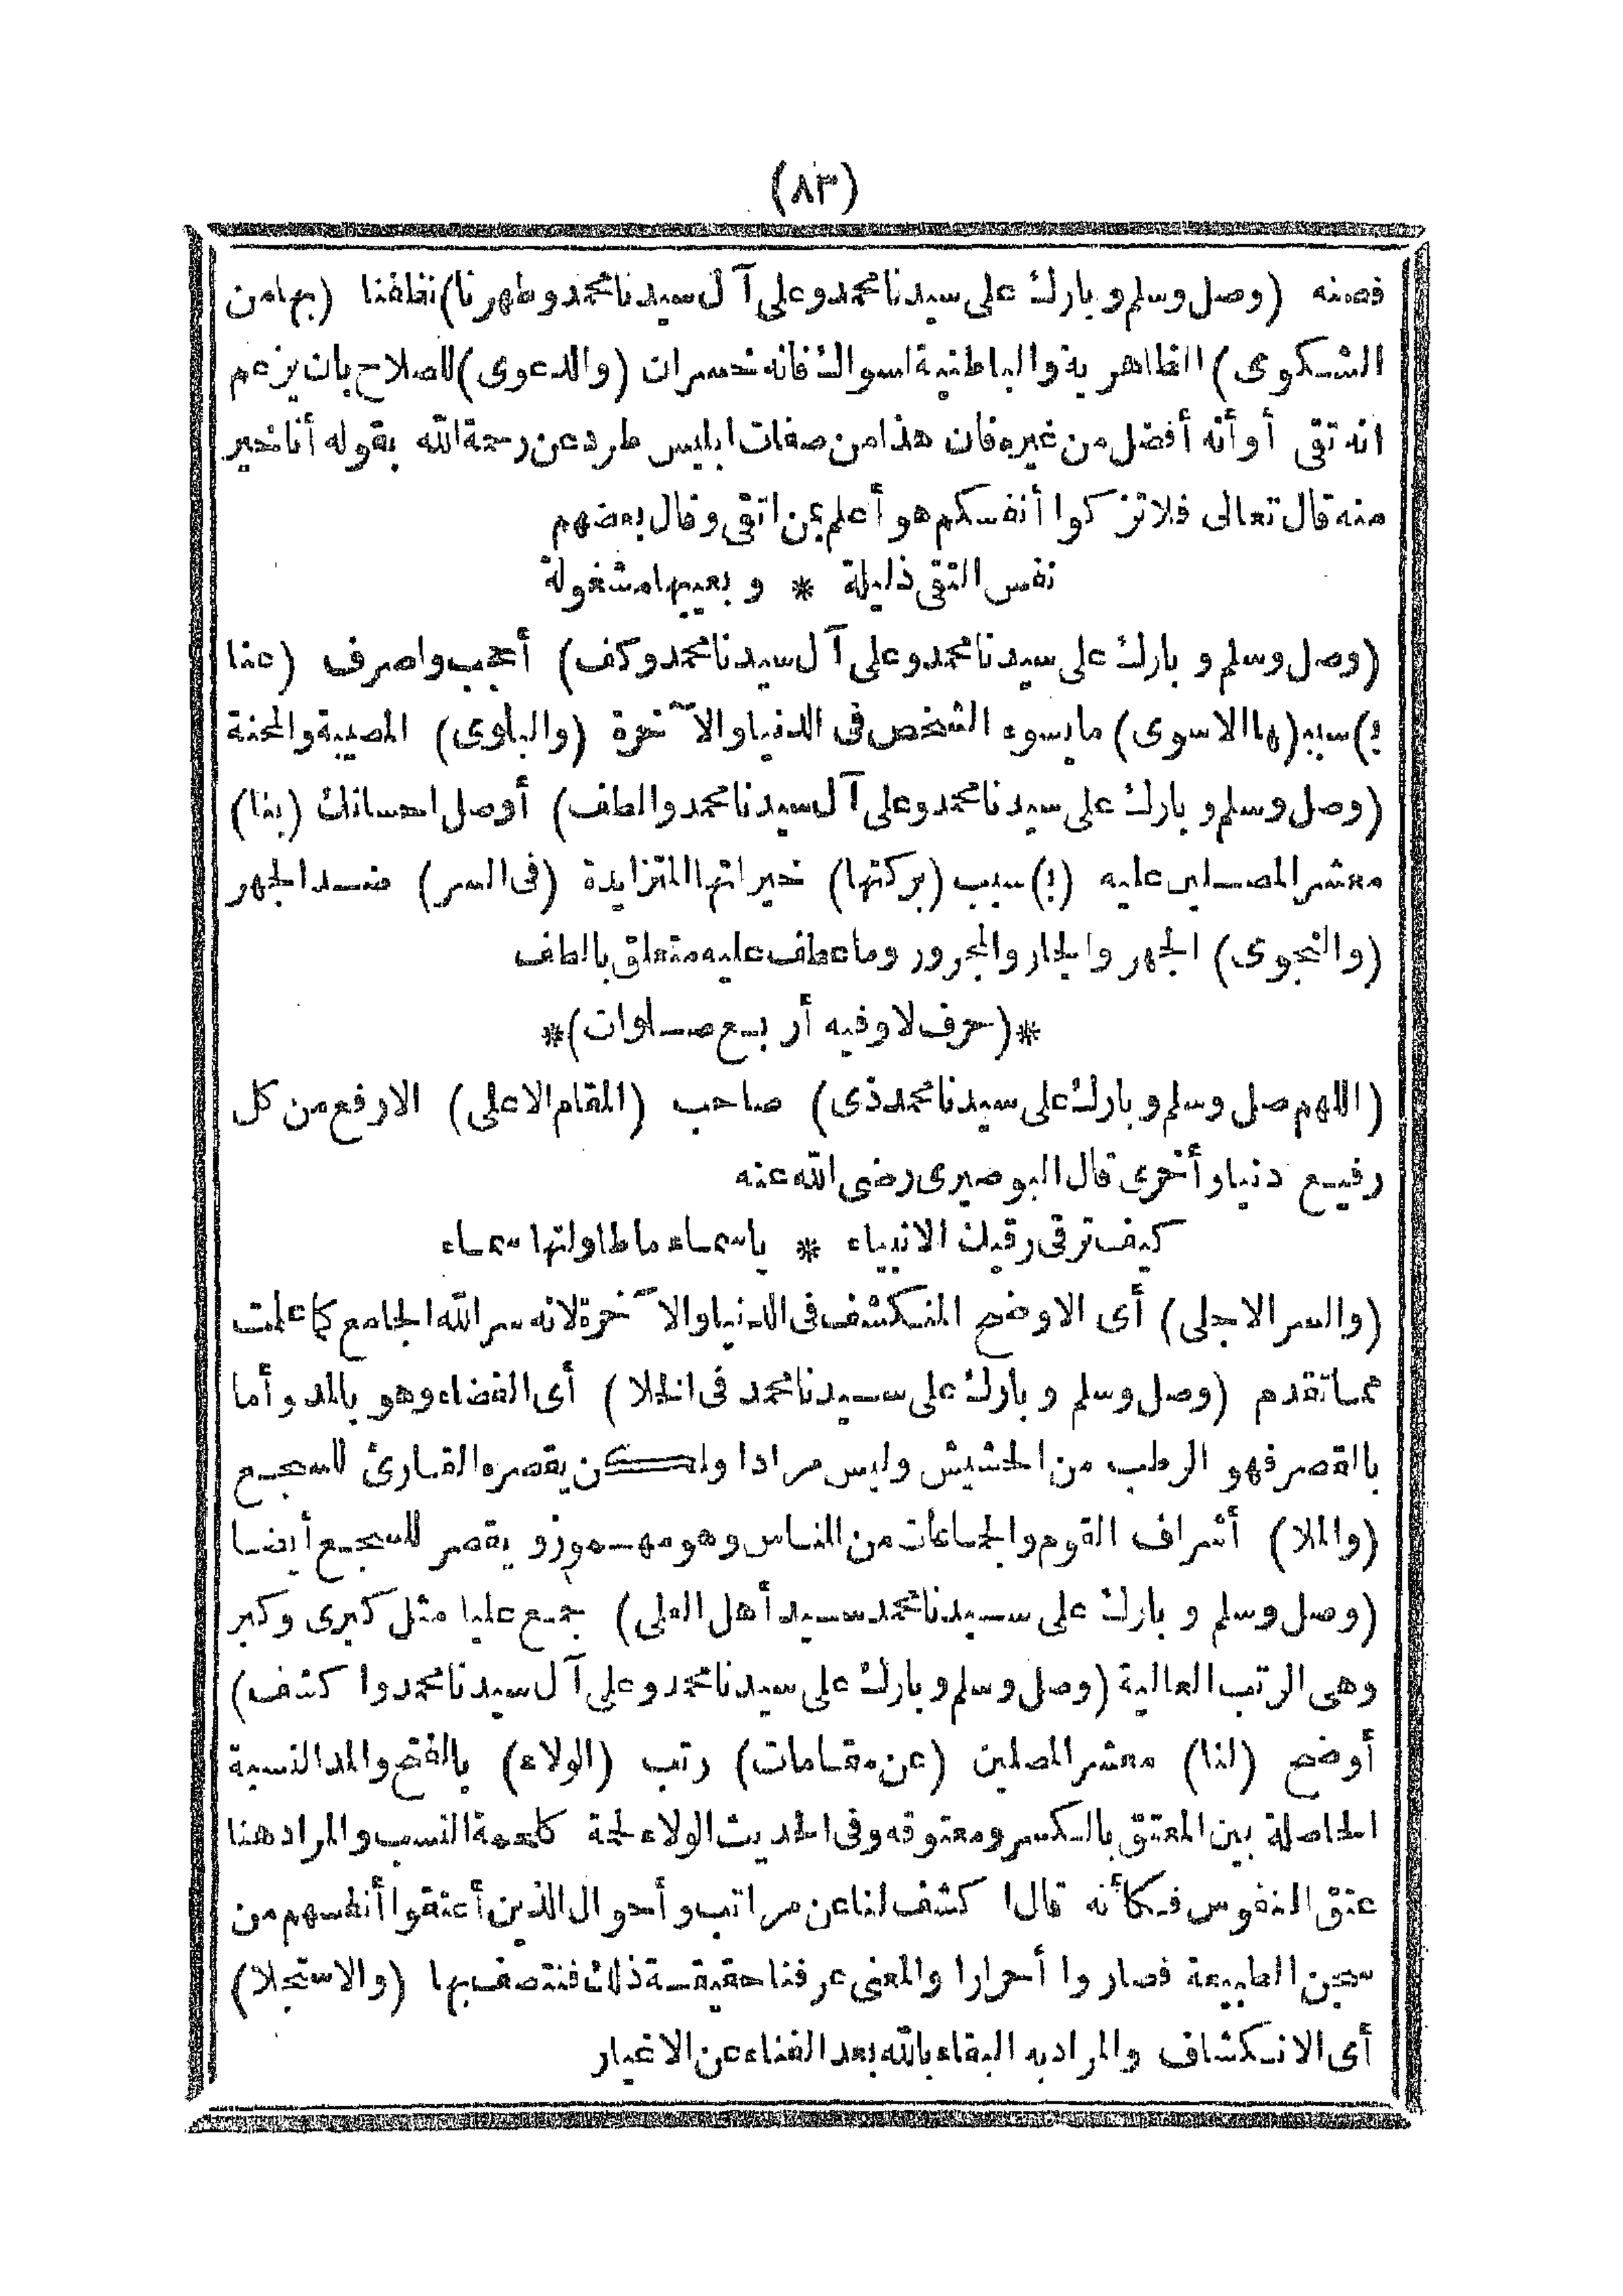 (٨٣)
فصنه (وصل وسلم وبارك على سيدنا محمد وعلى آل سيدنا محمد وطهرنا) نظفنا (بها من
الشكوى) الظاهرية والباطنية لسواك فانه خسران (والدعوى) للصلاح بان يزعم
انه تقى أو أنه أفضل من غيره فان هذا من صفات ابليس طرد عن رحمة الله بقوله أنا خير
منه قال تعالى فلا تزكوا أنفسكم هو أعلم بمن اتقى وقال بعضهم
نفس التقى ذليلة * وبعيبها مشغولة
(وصل وسلم وبارك على سيدنا محمد وعلى آل سيدنا محمد وكف) أعجب واصرف (عنا
ب)سبب(ها الاسوى) ما يسوء الشخص فى الدنيا والآخرة (والبلوى) المصيبة والمحنة
(وصل وسلم وبارك على سيدنا محمد وعلى آل سيدنا محمد والطف) أوصل احسانك (بنا)
معشر المصلين عليه (ب)سبب (بركتها) خيراتها المتزايدة (فى السر) ضد الجهر
(والنجوى) الجهر والجار والمجرور وما عطف عليه متعلق بالطف
*(حرف لا وفيه أربع صلوات)*
(اللهم صل وسلم وبارك على سيدنا محمد ذى) صاحب (المقام الاعلى) الارفع من كل
رفيع دنيا وأخرى قال البوصيرى رضى الله عنه
كيف ترقى رقيك الانبياء * يا سماء ما طاولتها سماء
(والسر الاجلى) أى الاوضح المنكشف فى الدنيا والآخرة لانه سر الله الجامع كما علمت
مما تقدم (وصل وسلم وبارك على سيدنا محمد فى الخلا) أى الفضاء وهو بالمد وأما
بالقصر فهو الرطب من الحشيش وليس مرادا ولكن يقصره القارئ للسجع
(والملا) أشراف القوم والجماعات من الناس وهو مهموز ويقصر للسجع أيضا
(وصل وسلم وبارك على سيدنا محمد سيد أهل العلى) جمع عليا مثل كبرى وكبر
وهى الرتب العالية (وصل وسلم وبارك على سيدنا محمد وعلى آل سيدنا محمد واكشف)
أوضح (لنا) معشر المصلين (عن مقامات) رتب (الولاء) بالفتح والمد النسبة
الحاصلة بين المعتق بالكسر ومعتوقه وفى الحديث الولاء لحمة كلحمة النسب والمراد هنا
عتق النفوس فكأنه قال اكشف لنا عن مراتب وأحوال الذين أعتقوا أنفسهم من
سجن الطبيعة فصاروا أحرارا والمعنى عرفنا حقيقة ذلك فنتصف بها (والاستجلا)
أى الانكشاف والمراد به البقاء بالله بعد الفناء عن الاغيار